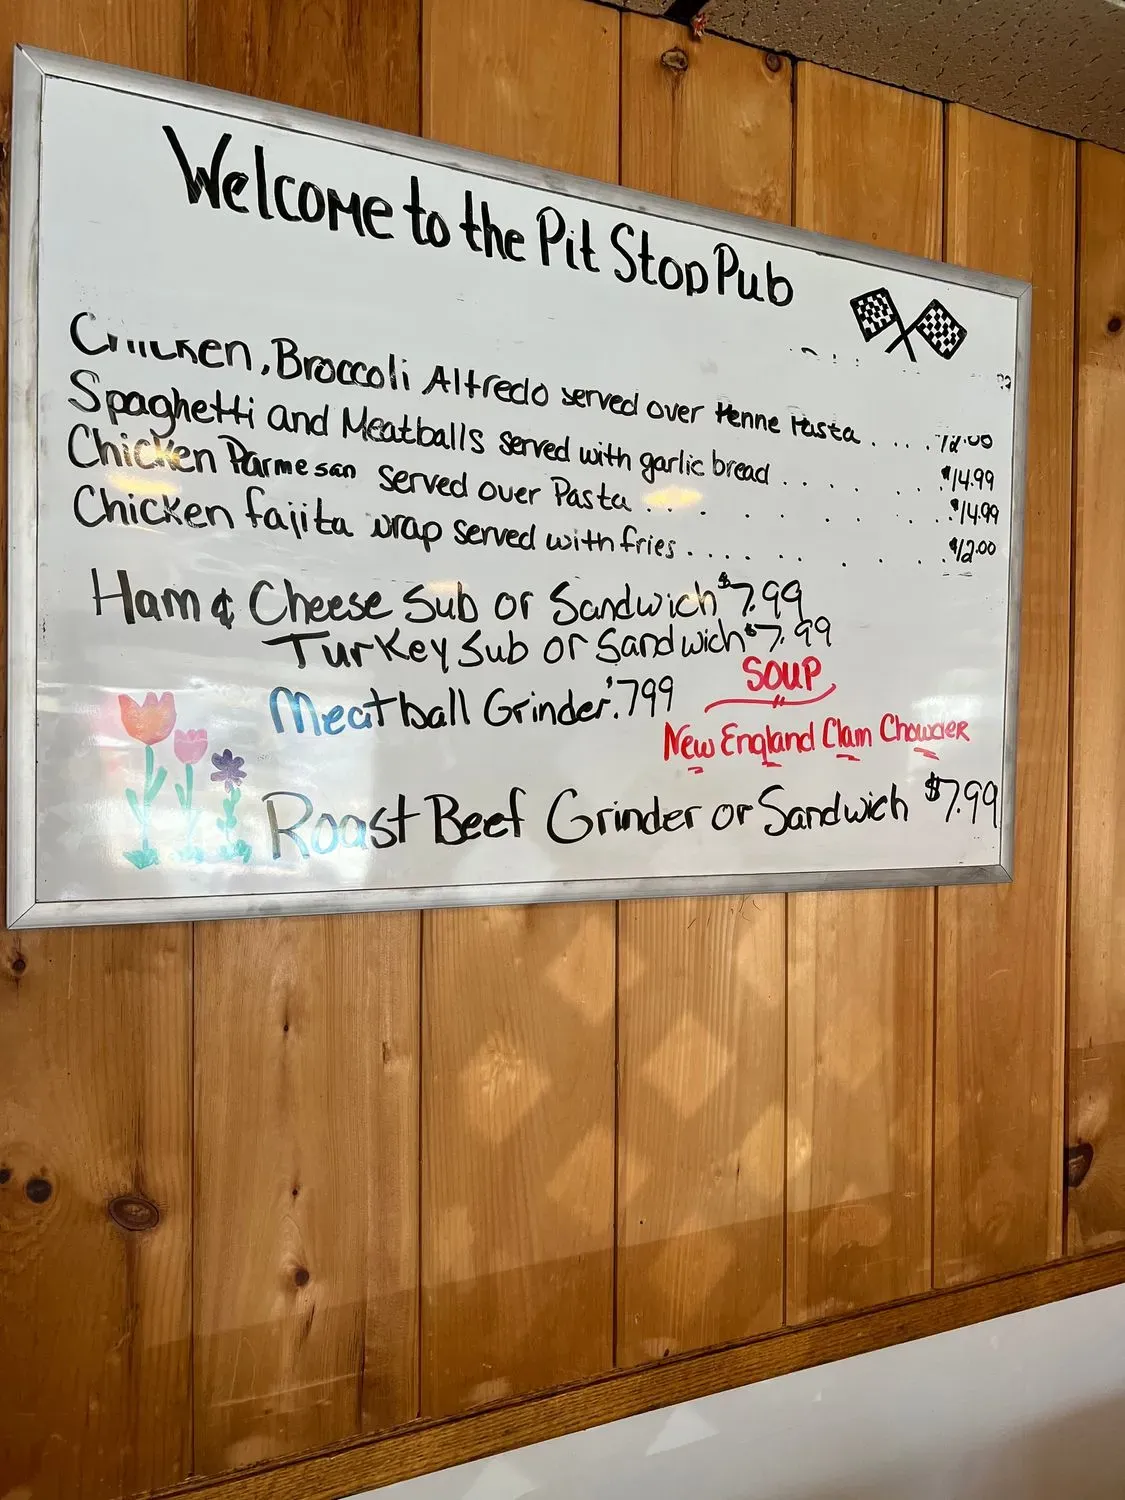 Welcome to the Pit Stop Pub
Chicken, Broccoli Alfredo served over Penne Pasta . . . .
Spaghetti and Meatballs served with garlic bread . . . . . $14.99
Chicken Parmesan served over Pasta . . . . . . . . . $14.99
Chicken fajita wrap served with fries . . . . . . . . . $12.00
Ham & Cheese Sub or Sandwich $7.99
Turkey Sub or Sandwich $7.99
Meatball Grinder $.799
SOUP
New England Clam Chowder
Roast Beef Grinder or Sandwich $7.99